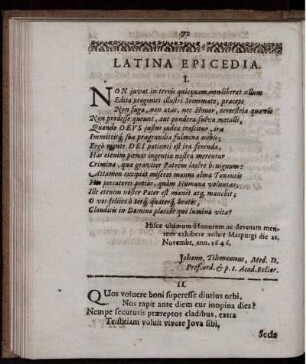 72
LATINA EPICEDIA.
I.
NON juvat in terris quicquam, non liberat ullum
Edita progenies illustri Stemmate, præceps
Non fuga, non ætas, nec Honor, terrestria quævis
Non prodesse queunt, aut pondera fulva metalli,
Quando DEUS justus judex irascitur, ira
Immittitq; sua prægrandia fulmina nobis;
Ergò mente DEI patienti est ira ferenda,
Hac etenim pœnas ingentia nostra merentur
Crimina, qua graviter Patrem læsere benignum:
Attamen excipiat miseros manus alma Tonantis
Hos peccatores potius, quàm Humana voluntas;
Ille etenim noster Pater est manet atq; manebit;
O vos felices ô terq; quaterq; beati,
Clauditis in Domino placidè qui lumina vitæ!
Hisce ultimum Honorem ac devotam men-
tem exhibere voluit Marpurgi die 21.
Novembr. ann. 1646.
Johann. Tilemannus, Med. D.
Prof. ord. & p. t. Acad. Rector.
II.
QUos voluere boni superesse diutius orbi,
Nos rapit ante diem cur inopina dies?
Nempe securturis præreptos cladibus, extra
Tristitiam voluit vivere Jova sibi,
Sede